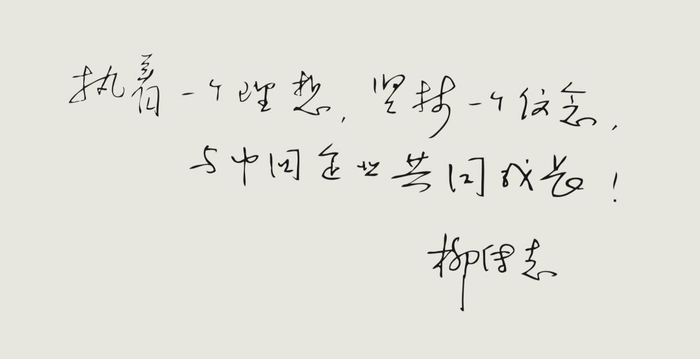 执着一个理想,坚持一个信念,
与中国企业共同成长!
柳传志